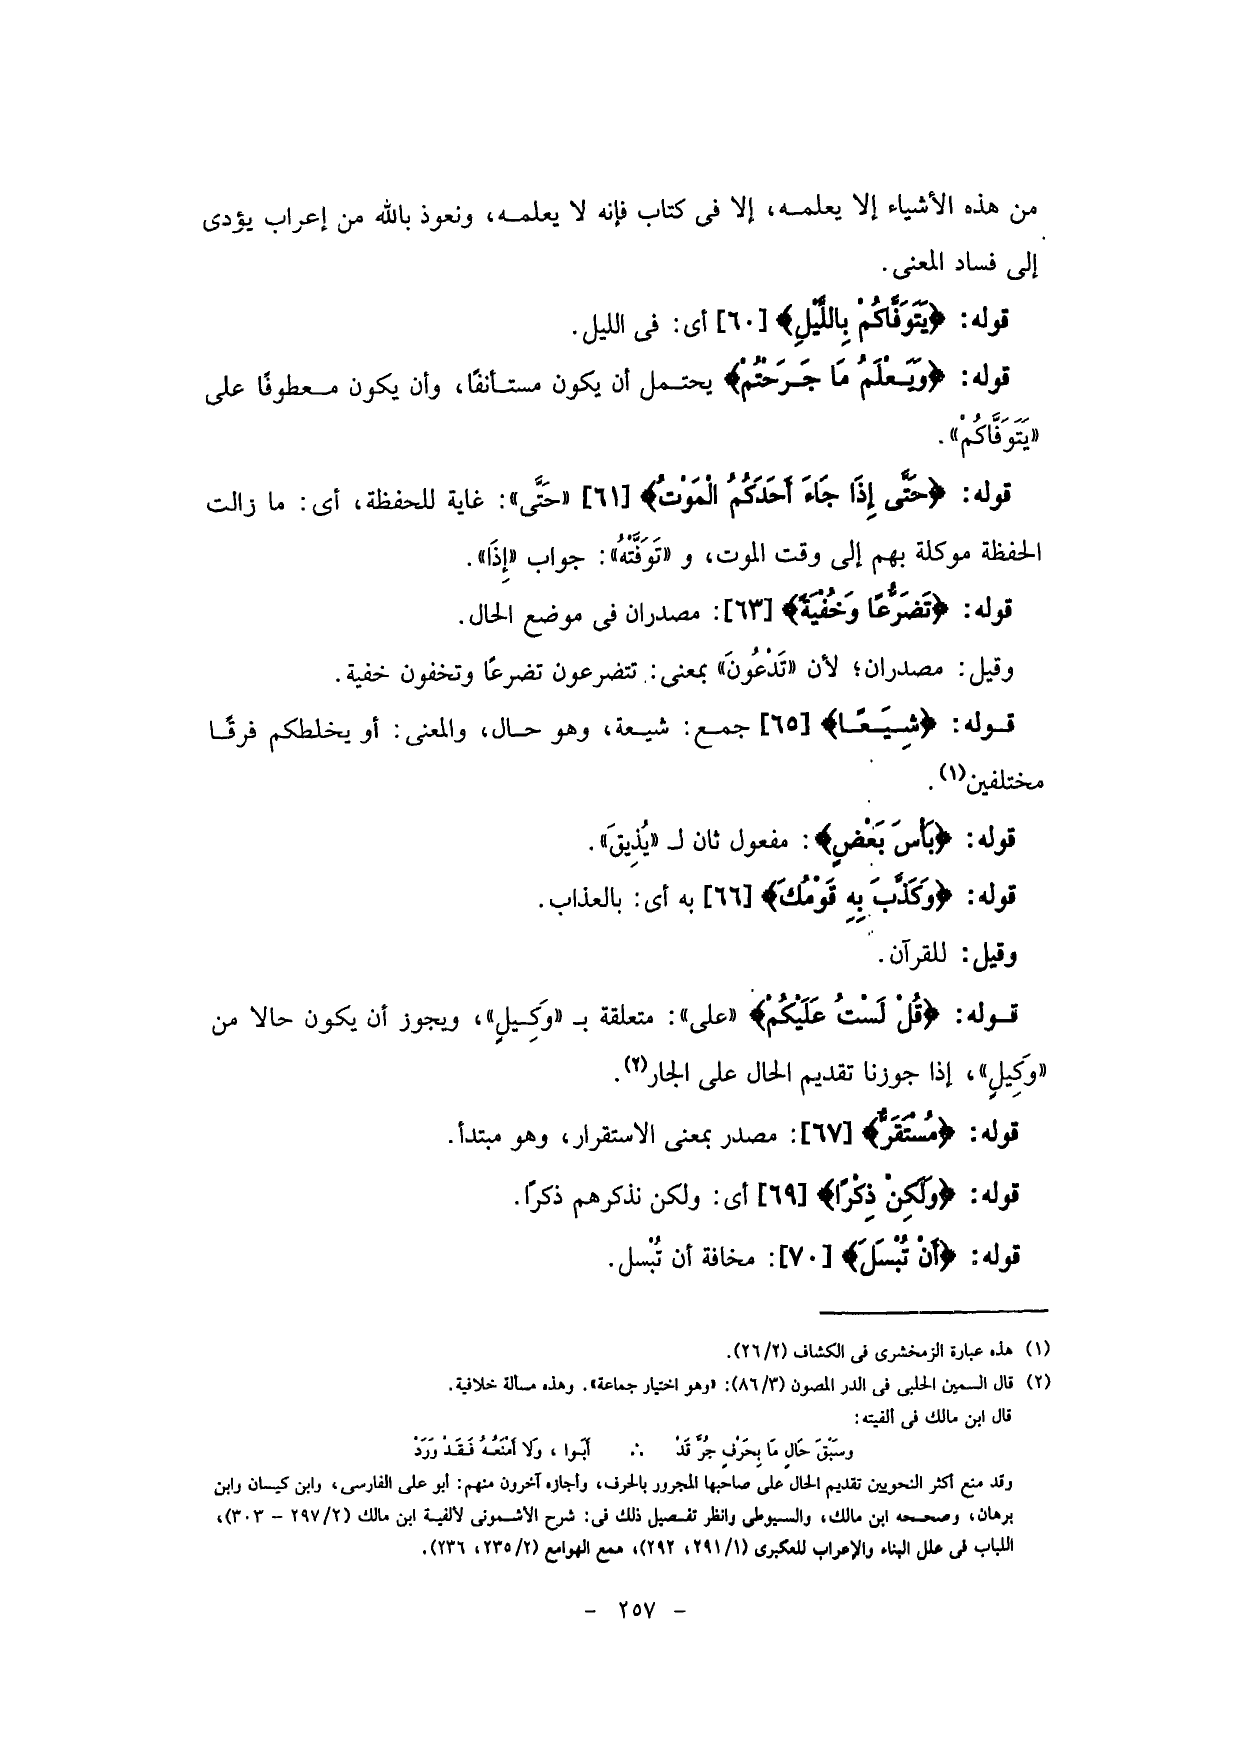 من هذه الأشياء إلا يعلمـــه، إلا فى كتاب فإنه لا يعلمـــه، ونعوذ بالله من إعراب يؤدى
إلى فساد المعنى.
قوله: ﴿يَتَوَفَّاكُمْ بِاللَّيْلِ﴾ [٦٠] أى: فى الليل.
قوله: ﴿وَيَـعْلَمُ مَا جَـرَحْتُمْ﴾ يحتــمل أن يكون مستـأنفًا، وأن يكون مــعطوفًا على
«يَتَوَفَّاكُمْ».
قوله: ﴿حَتَّى إِذَا جَاءَ أَحَدَكُمُ الْمَوْتُ﴾ [٦١] «حَتَّى»: غاية للحفظة، أى: ما زالت
الحفظة موكلة بهم إلى وقت الموت، و «تَوَفَّتْهُ»: جواب «إِذَا».
قوله: ﴿تَضَرُّعًا وَخُفْيَةً﴾ [٦٣]: مصدران فى موضع الحال.
وقيل: مصدران؛ لأن «تَدْعُونَ» بمعنى: تتضرعون تضرعًا وتخفون خفية.
قــوله: ﴿شِـيَـعًـا﴾ [٦٥] جمـع: شيـعة، وهو حــال، والمعنى: أو يخلطكم فرقًـا
مختلفين(١).
قوله: ﴿بَأْسَ بَعْضٍ﴾: مفعول ثان لـ «يُذِيقَ».
قوله: ﴿وَكَذَّبَ بِهِ قَوْمُكَ﴾ [٦٦] به أى: بالعذاب.
وقيل: للقرآن.
قــوله: ﴿قُلْ لَسْتُ عَلَيْكُمْ﴾ «على»: متعلقة بـ «وَكِـيلٍ»، ويجوز أن يكون حالا من
«وَكِيلٍ»، إذا جوزنا تقديم الحال على الجار(٢).
قوله: ﴿مُسْتَقَرٌّ﴾ [٦٧]: مصدر بمعنى الاستقرار، وهو مبتدأ.
قوله: ﴿وَلَكِنْ ذِكْرًا﴾ [٦٩] أى: ولكن نذكرهم ذكرًا.
قوله: ﴿أَنْ تُبْسَلَ﴾ [٧٠]: مخافة أن تُبْسل.
(١) هذه عبارة الزمخشرى فى الكشاف (٢٦/٢).
(٢) قال السمين الحلبى فى الدر المصون (٨٦/٣): «وهو اختيار جماعة». وهذه مسألة خلافية.
قال ابن مالك فى ألفيته:
وسَبْقَ حَالٍ مَا بِحَرْفٍ جُرَّ قَدْ ∴ أَبَوا ، وَلَا أَمْنَعُـهُ فَـقَـدْ وَرَدْ
وقد منع أكثر النحويين تقديم الحال على صاحبها المجرور بالحرف، وأجازه آخرون منهم: أبو على الفارسى، وابن كيـسان وابن
برهان، وصـحـحه ابن مالك، والسيوطى وانظر تفـصيل ذلك فى: شرح الأشـمونى لألفيـة ابن مالك (٢٩٧/٢ – ٣٠٣)،
اللباب فى علل البناء والإعراب للعكبرى (٢٩١/١، ٢٩٢)، همع الهوامع (٢٣٥/٢، ٢٣٦).
– ٢٥٧ –